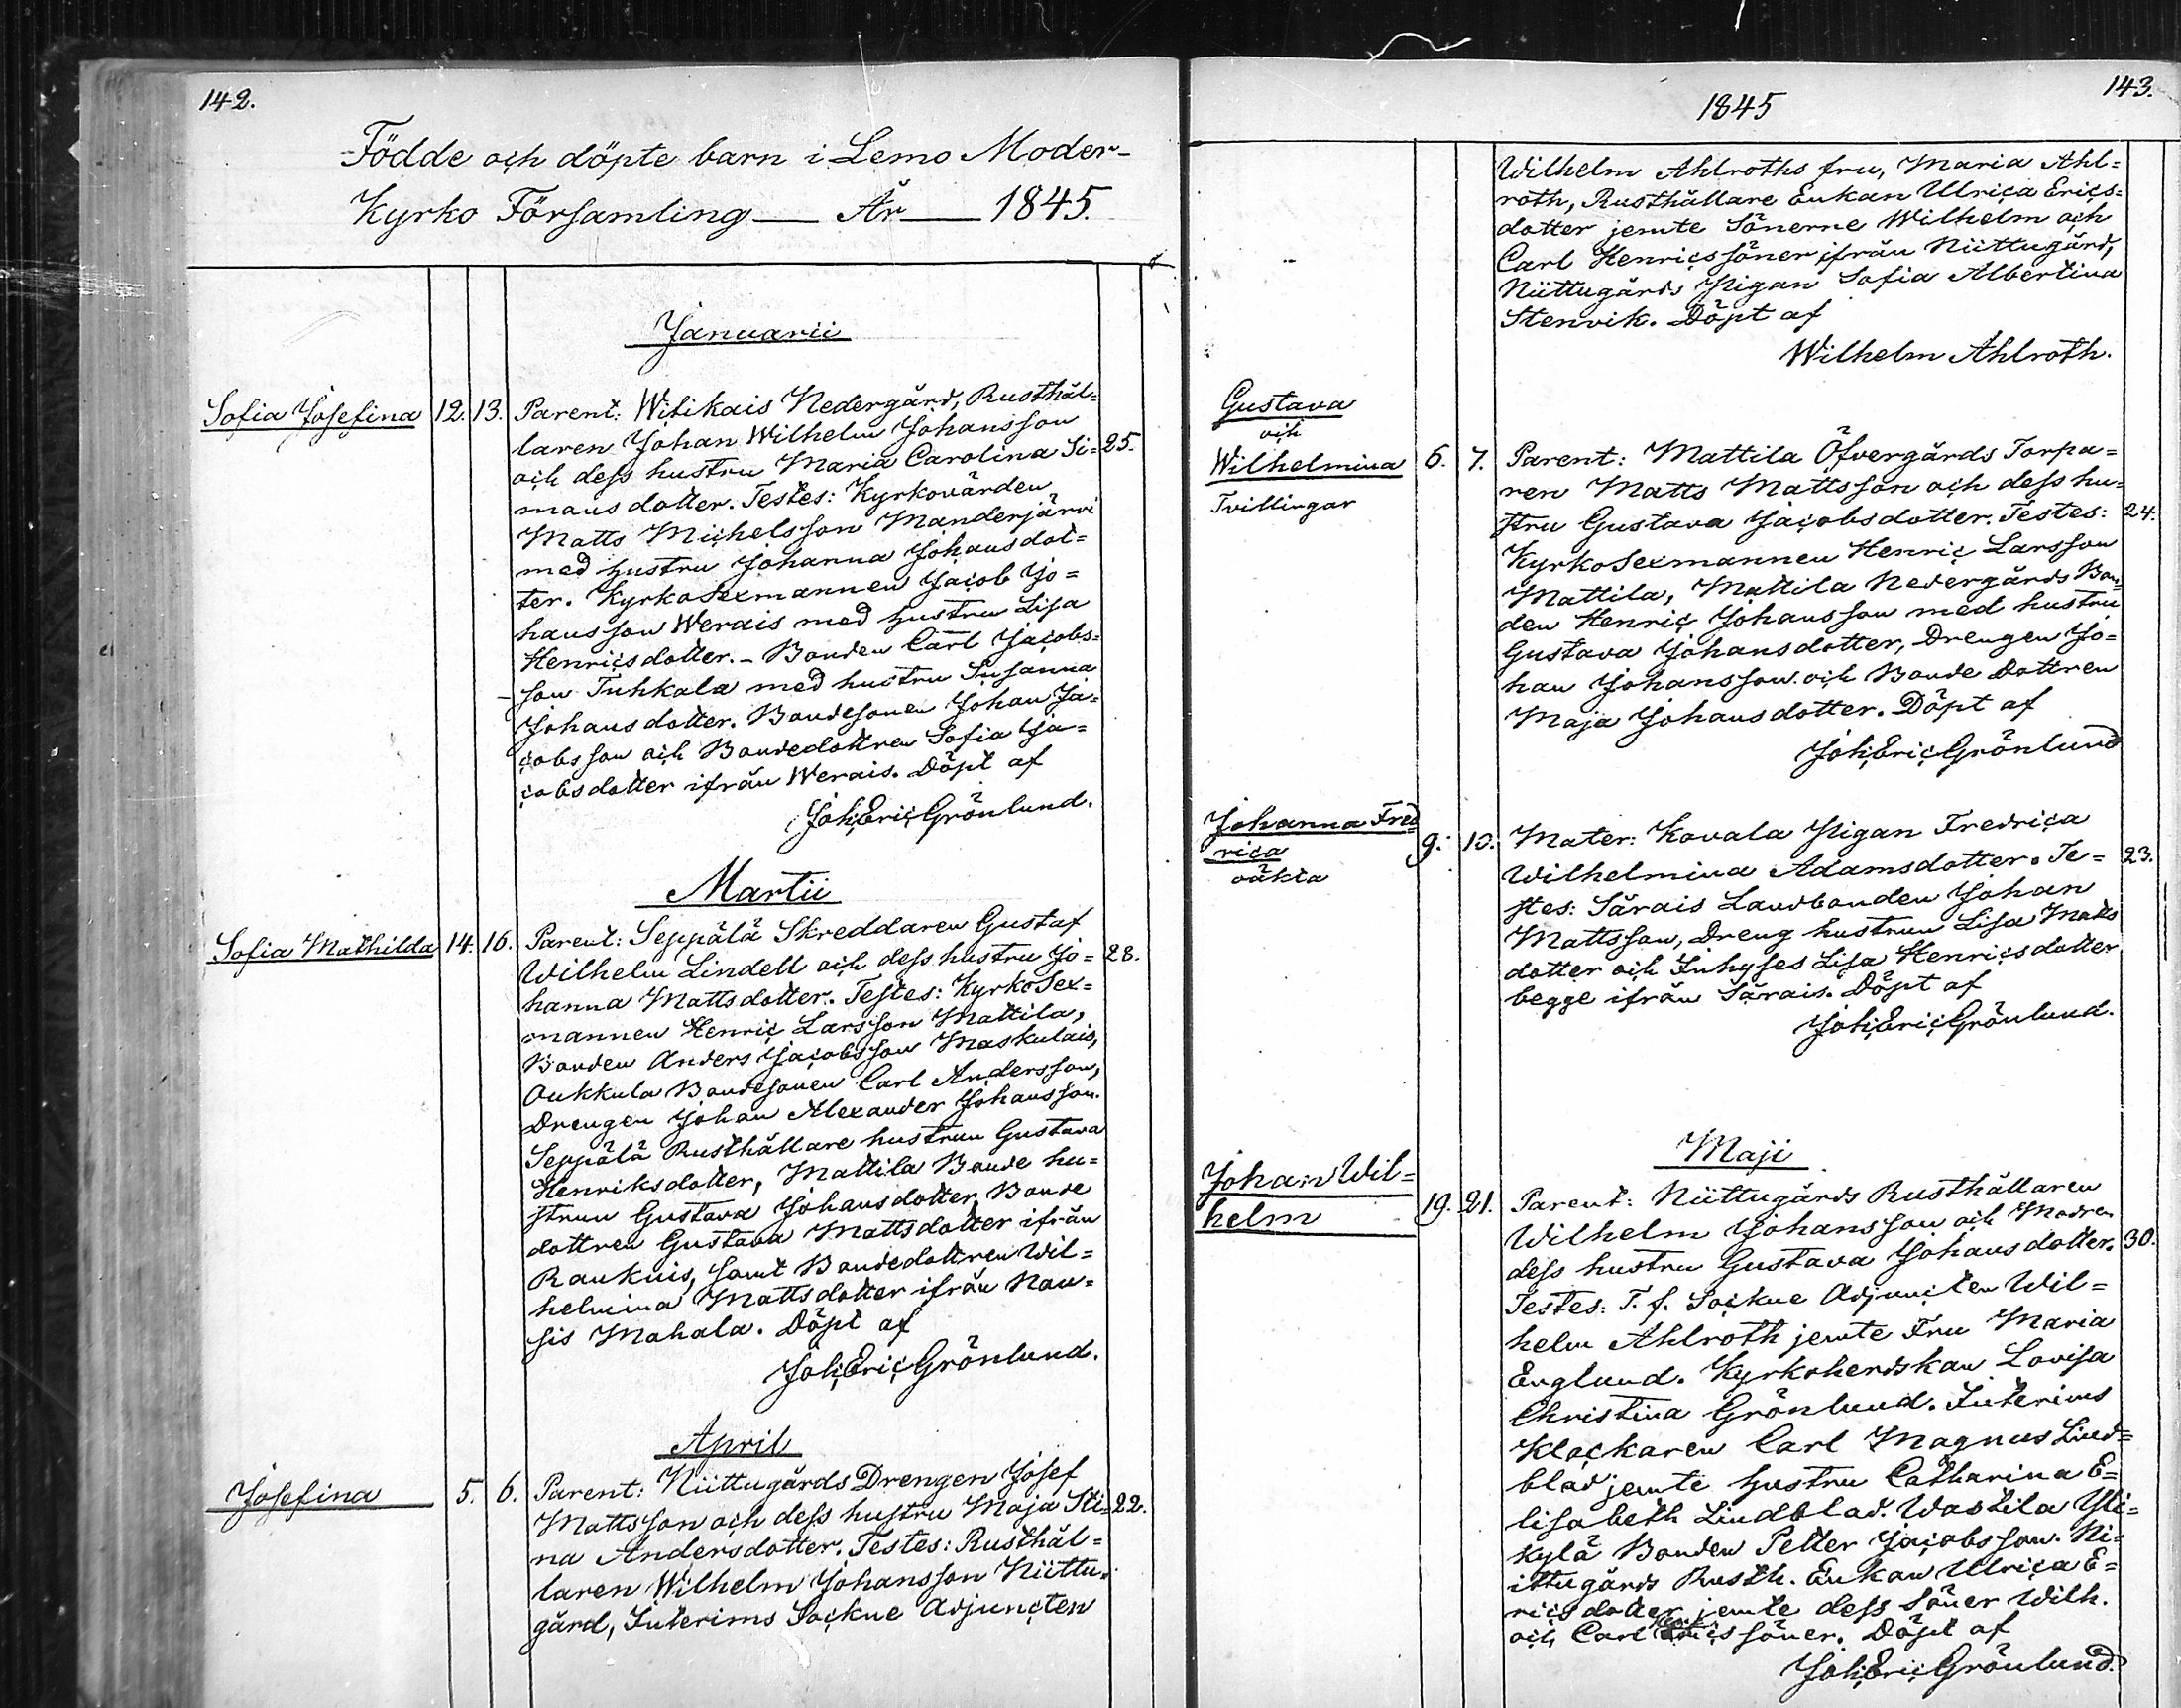 142.
Födde och döpte barn i Lemo Moder-
Kyrko Församling — År — 1845.
Januarii
Sofia Josefina 12. 13. Parent: Witikais Nedergård, Rusthål=
laren Johan Wilhelm Johansson
och dess hustru Maria Carolina Si= 25.
mausdotter. Testes: Kyrkovärden
Matts Michelsson Manderjärvi
med hustru Johanna Johansdot=
ter. Kyrkosexmannen Jacob Jo=
hansson Werais med hustru Lisa
Henricsdotter. - Bonden Carl Jacobs=
son Tuhkala med hustru Susanna
Johansdotter. Bondesonen Johan Ja=
cobsson och Bondedottren Sofia Ja=
cobsdotter ifrån Werais. Döpt af
Joh. Eric Grönlund.
Martii
Sofia Mathilda 14. 16. Parent: Seppälä Skreddaren Gustaf
Wilhelm Lindell och dess hustru Jo= 28.
hanna Mattsdotter. Testes: Kyrkosex=
mannen Henric Larsson Mattila,
Bonden Anders Jacobsson Maskulais,
Oukkula Bondesonen Carl Andersson,
Drengen Johan Alexander Johansson.
Seppälä Rusthållare hustrun Gustava
Henriksdotter, Mattila Bonde hu=
strun Gustava Johansdotter, Bonde
dottren Gustava Mattsdotter ifrån
Raukuis, samt Bondedottren Wil=
helmina Mattsdotter ifrån Nou=
sis Mahala. Döpt af
Joh. Eric Grönlund.
April
Josefina 5. 6. Parent: Niittugårds Drengen Josef
Mattsson och dess hustru Maja Sti= 22.
na Andersdotter. Testes: Rusthål=
laren Wilhelm Johansson Niittu=
gård, Interims Sockne Adjuncten
143.
1845
Wilhelm Ahlroths fru, Maria Ahl=
roth, Rusthållare Enkan Ulrica Erics=
dotter jemte Sönerne Wilhelm och
Carl Henrics söner ifrån Niittugård,
Niittugårds Pigan Sofia Albertina
Stenvik. Döpt af
Wilhelm Ahlroth.
Gustava
och
Wilhelmina 6. 7. Parent: Mattila Öfvergårds Torpa=
Tvillingar
ren Matts Mattsson och dess hu=
stru Gustava Jacobsdotter. Testes: 24.
Kyrkosexmannen Henric Larsson
Mattila, Mattila Nedergårds Bon=
den Henric Johansson med hustru
Gustava Johansdotter, Drengen Jo=
han Johansson och Bonde Dottren
Maja Johansdotter. Döpt af
Joh. Eric Grönlund
Johanna Fred
rica 9. 10. Mater: Kovala Pigan Fredrica
oäkta
Wilhelmina Adamsdotter. Te= 23.
stes: Särais Landbonden Johan
Mattsson, Dreng hustrun Lisa Matts
dotter och Inhyses Lisa Henricsdotter
begge ifrån Särais. Döpt af
Joh. Eric Grönlund.
Maji
Johan Wil=
helm 19. 21. Parent: Niittugårds Rusthållaren
Wilhelm Johansson och Modren
dess hustru Gustava Johansdotter. 30.
Testes: T. f. Sockne Adjuncten Wil=
helm Ahlroth jemte Fru Maria
Englund. Kyrkoherdskan Lovisa
Christina Grönlund. Interims
Klockaren Carl Magnus Lind=
blad jemte hustru Catharina E=
lisabeth Lindblad. Wastila Yli=
kylä Bonden Petter Jacobsson. Ni=
ittugårds Rusth. Enkan Ulrica E=
ricsdotter jemte dess Söner Wilh.
och Carl söner. Döpt af
Joh. Eric Grönlund.